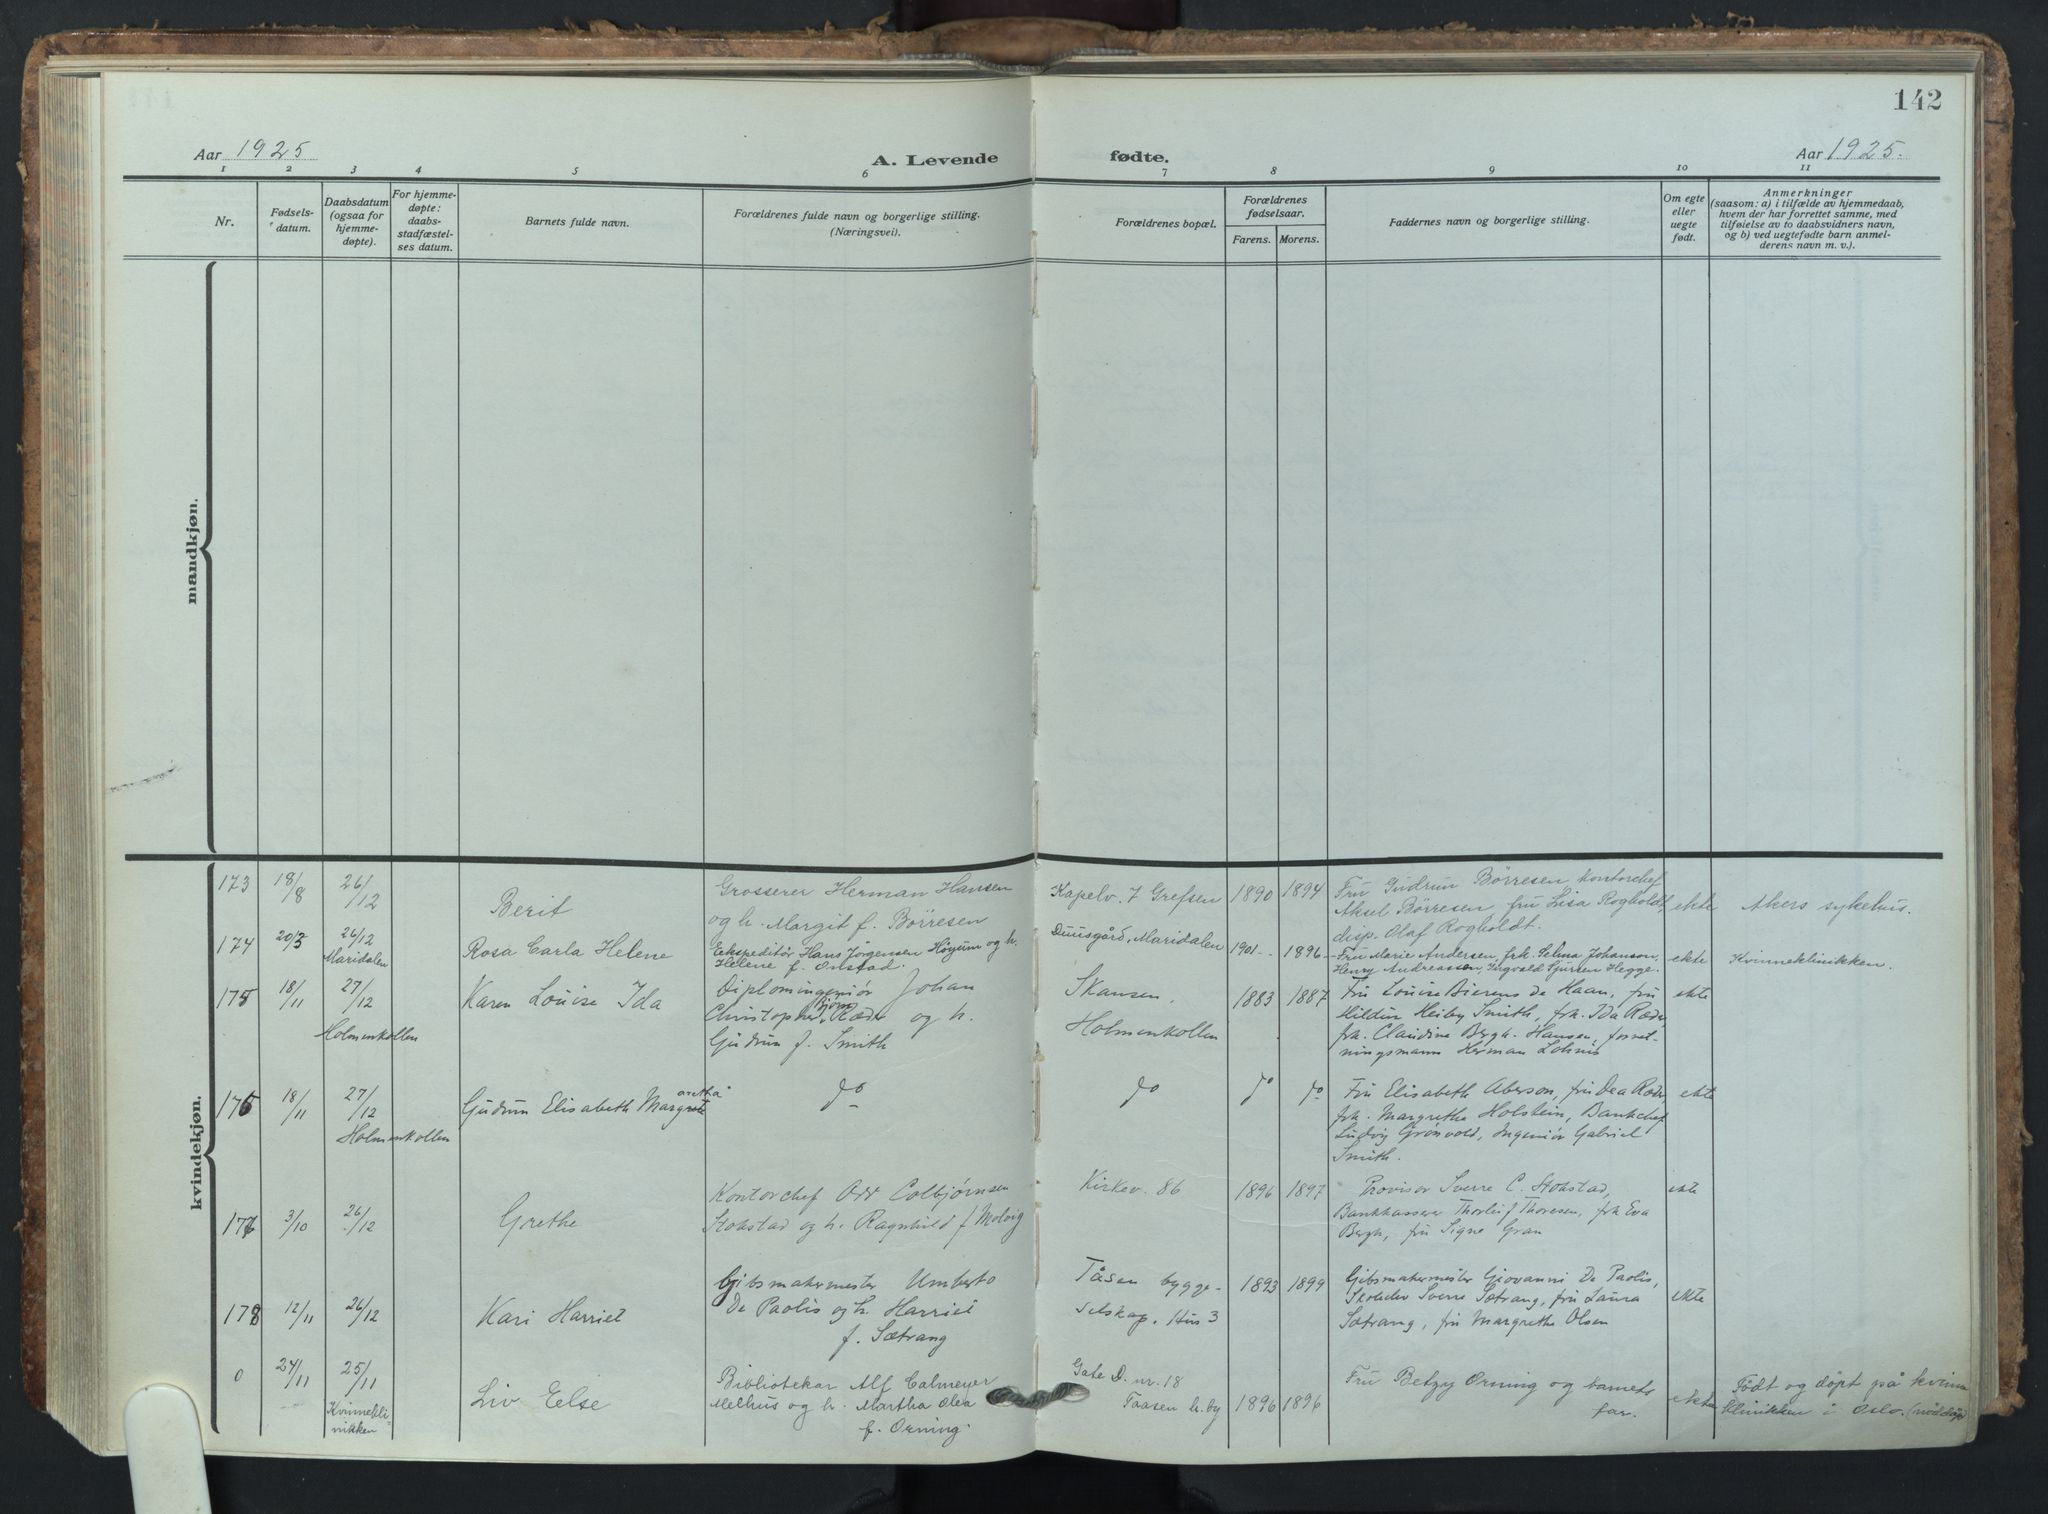 142
Aar 1925
A. Levende fødte.
Aar 1925.
1 2 3 4 5 6 7 8 9 10 11
Nr.
Fødsels-
datum.
Daabsdatum
(ogsaa for
hjemme-
døpte).
For hjemme-
døpte:
daabs-
stadfæstel-
ses datum.
Barnets fulde navn.
Forældrenes fulde navn og borgerlige stilling.
(Næringsvei).
Forældrenes bopæl.
Forældrenes
fødselsaar.
Farens. Morens.
Faddernes navn og borgerlige stilling.
Om egte
eller
uegte
født.
Anmerkninger
(saasom: a) i tilfælde av hjemmedaab,
hvem der har forrettet samme, med
tilføielse av to daabsvidners navn,
og b) ved uegtefødte barn anmel-
derens navn m. v.).
mandkjøn.
kvindekjøn.
173
18/8
26/12
Berit
Grosserer Herman Hansen
og h. Margit f. Börresen
Kapelv. 7 Grefsen
1890 1894
Fru Gudrun Börresen kontorchef
Aksel Börresen, fru Lisa Rogholdt,
disp. Olaf Rogholdt.
ekte
Akers sykehus.
174
20/3
26/12
Maridalen
Rosa Carla Helene
Eekspeditör Hans Jörgensen Höyum og h.
Helene f. Onstad.
Duusgård, Maridalen
1901 1896
Fru Marie Andersen, frk. Selma Johanson,
Henry Andreassen, Ingvald Sjursen Hegge.
ekte
Kvinneklinikken.
175
18/11
27/12
Holmenkollen
Karen Louise Ida
Diplomingeniör Johan
Christopher Bjørn Ræder og h.
Gudrun f. Smith
Skansen,
Holmenkollen
1883 1887
Fru Louise Bierens De Haan, fru
Hildur Heiby Smith, frk. Ida Ræder
frk. Claudine Bergh-Hansen, forret-
ningsmann Herman Lohnis
ekte
176
18/11
27/12
Holmenkollen
Gudrun Elisabeth Margrete
aretha
do
do
do
do
Fru Elisabeth Aberson, fru Dea Ræder,
frk. Margretha Holstein, Bankchef
Ludvig Grönvold, Ingeniör Gabriel
Smith.
ekte
177
3/10
26/12
Grethe
Kontorchef Odd Colbjørnsen
Stokstad og h. Ragnhild f Molvig
Kirkev. 86
1896 1897
Provisor Sverre C. Stokstad,
Bankkasserer Thorleif Thoresen, frk Eva
Bergh, fru Signe Gran
ekte
178
12/11
26/12
Kari Harriet
Gibsmakermester Umberto
De Paolis og h. Harriet
f. Sætrang
Tåsen bygge-
selskap. Hus 3
1893 1899
Gibsmakermester Giovanni De Paolis,
Skoleelev Sverre Sætrang, fru Laura
Sætrang, fru Margrethe Olsen
ekte
0
24/11
25/11
Kvinnekli-
nikken
Liv Else
Bibliotekar Alf Calmeyer
Melhus og h. Martha Olea
f. Orning.
Gate D. nr. 18
Taasen h.by
1896 1896
Fru Betzy Orning og barnets
far.
ekte
Född og döpt på kvinne
klinikken i Oslo. (nöddöpt